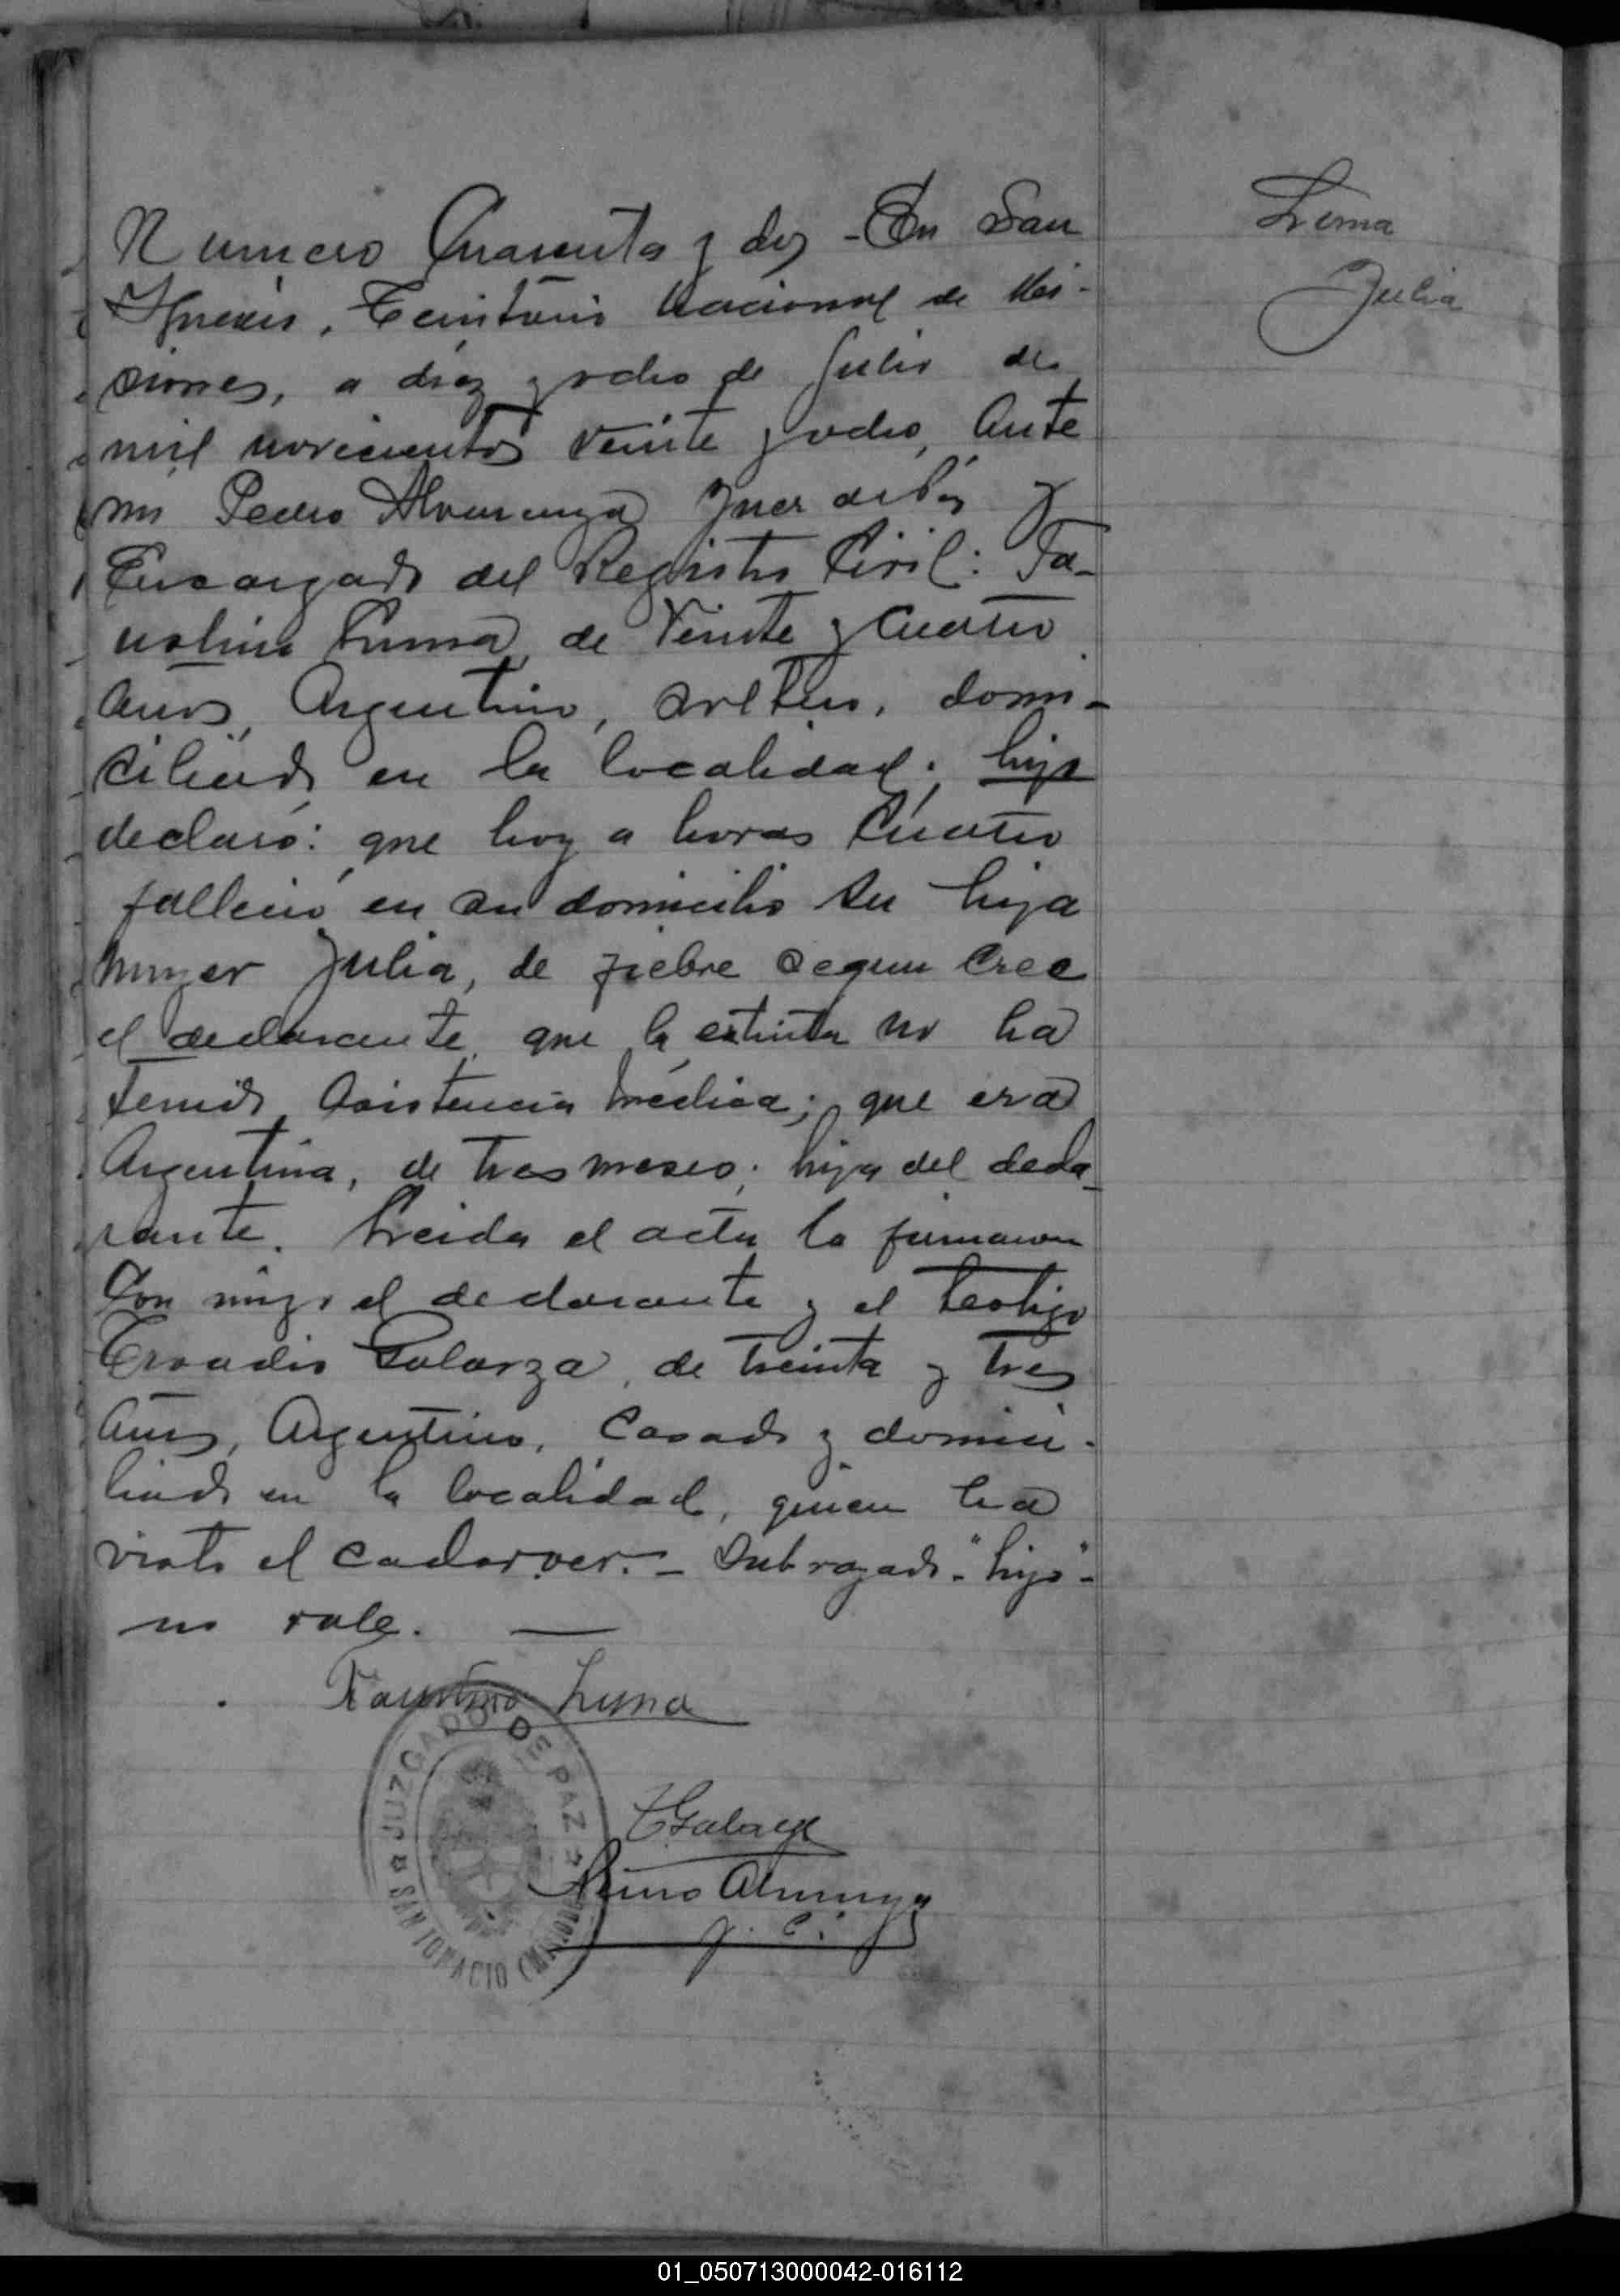 Luna
Julia
Número Cuarenta y dos - En San
Ignacio, Territorio Nacional de Mi-
siones, a diez y ocho de Julio de
mil novecientos veinte y ocho, Ante
mi Pedro Alvarenga Juez de Paz y
Encargado del Registro Civil: Fa-
ustino Luna, de Veinte y cuatro
años, Argentino, soltero, domi-
ciliado en la localidad; hijo
declaró: que hoy a horas cuatro
falleció en su domicilio su hija
mujer Julia, de fiebre segun cree
el declarante, que la extinta no ha
tenido Asistencia médica; que era
Argentina, de tres meses; hija del decla-
rante. Leida el acta la firmaron
Con migo el declarante y el testigo
Galarza, de treinta y tres
años, Argentino, Casado y domici-
liado en la localidad, quien ha
visto el cadarver. - Subrayado - "hijo" -
no vale. —
Faustino Luna
JUZGADO DE PAZ
SAN IGNACIO (MISIONES)
Galarza
Alvarenga
01_050713000042-016112